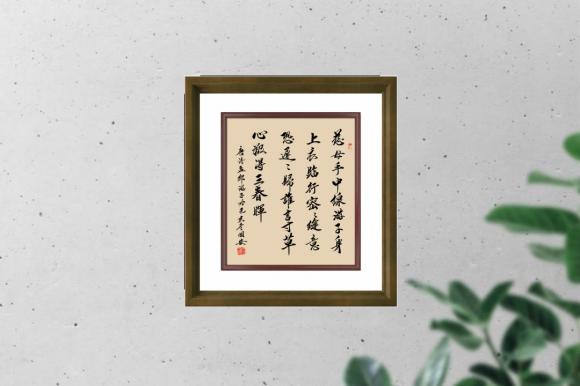 慈母手中線游子身
上衣臨行密〻縫意
恐遲〻歸誰言寸草
心報得三春暉
唐詩孟郊游子吟